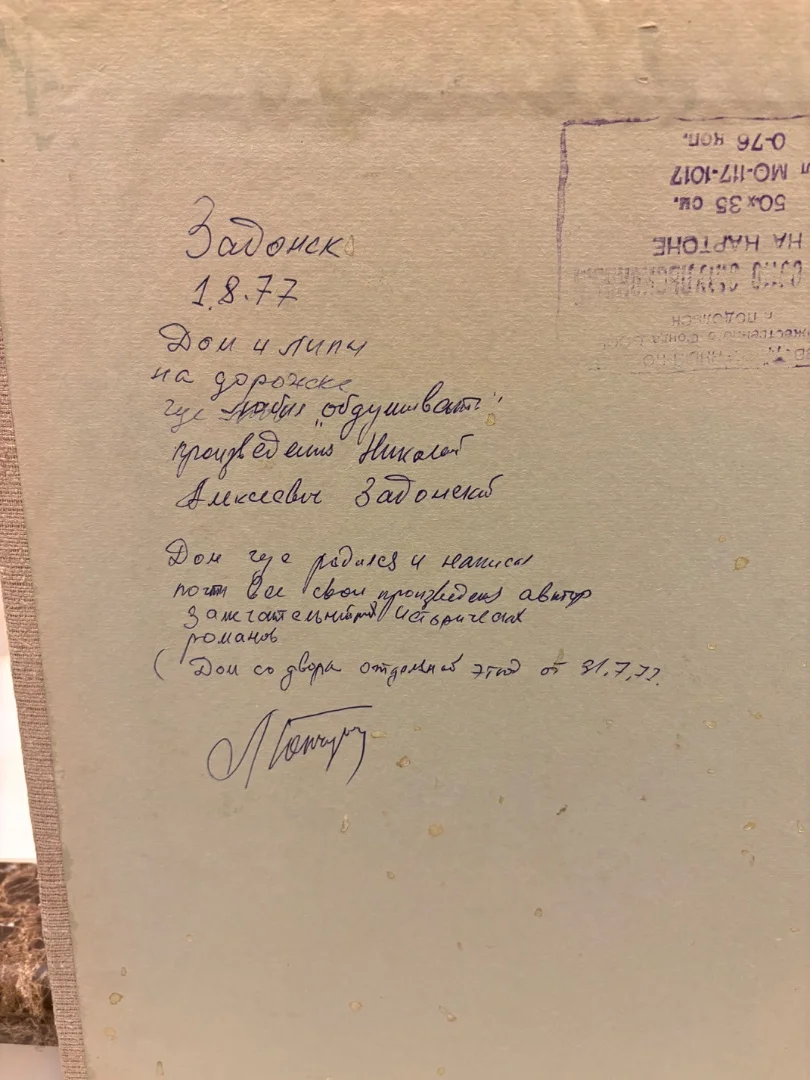 Задонск
1.8.77
Дом и липы
на дорожке
где любил "обдумывать"
произведения Николай
Алексеевич Задонский
Дом где родился и написал
почти все свои произведения автор
замечательных исторических
романов
( Дом со двора отдельный этюд от 31.7.77.
0-76 коп.
МО-117-1017
50х35 см.
НА КАРТОНЕ
г. ПОДОЛЬСК